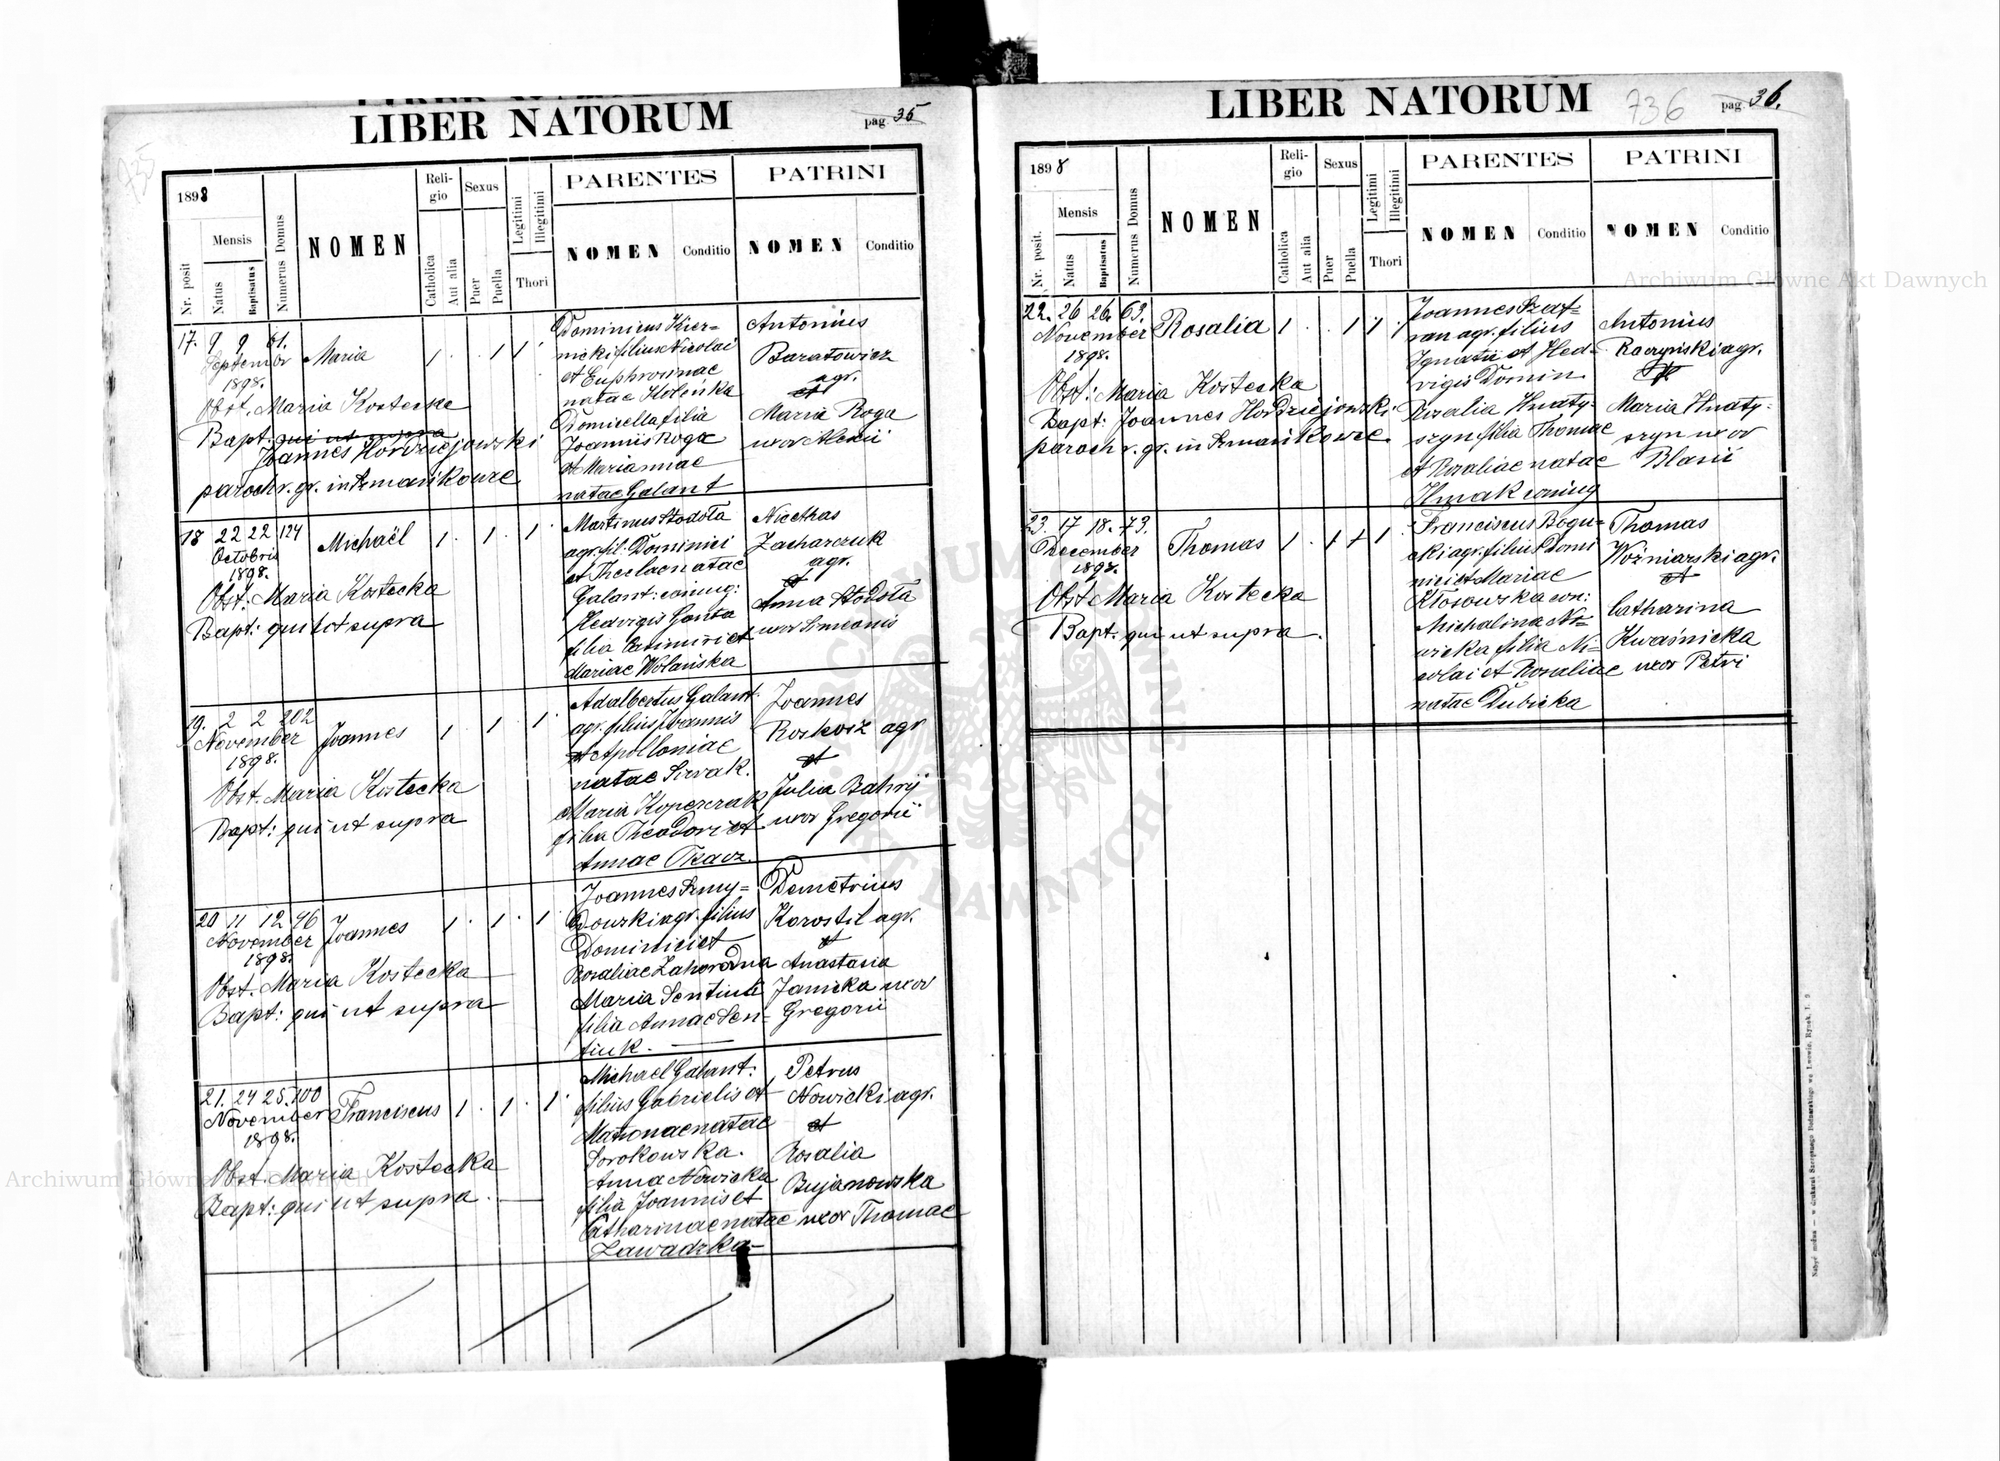 LIBER NATORUM
pag. 35
1898
Mensis
Nr. posit
Natus
Baptisatus
Numerus Domus
NOMEN
Reli-
gio
Catholica
Aut alia
Sexus
Puer
Puella
Legitimi
Illegitimi
Thori
PARENTES
NOMEN
Conditio
PATRINI
NOMEN
Conditio
17. 9 9 61.
September
1898.
Maria
1 . . 1 1
Obst. Maria Kostecka
Bapt. qui ut supra
Joannes Hordziejowski
paroch r. gr. in Szmańkowce
Dominicus Kier-
nicki filius Nicolai
et Euphrosinae
natae Holeńka
Domicella filia
Joannis Roga
et Mariannae
natae Galant
Antonius
Baratowicz
agr.
et
Maria Roga
uxor Alexii
18 22 22 124
Octobris
1898.
Michaël
1 . 1 . 1
Obst: Maria Kostecka
Bapt: qui ut supra
Martinus Stodoła
agr. fil. Dominici
et Theclae natae
Galant: coniug:
Hedvigis Gonta
filia Casimiri et
Mariae Wolańska
Nicethas
Zacharczuk
agr.
et
Anna Stodoła
uxor Simeonis
19. 2 2 202
November
1898.
Joannes
1 . 1 . 1
Obst. Maria Kostecka
Bapt: qui ut supra
Adalbertus Galant
agr. filius Joannis
et Apolloniae
natae Sirvak.
Maria Kopczrak
filia Theodori et
Annae Tkacz.
Joannes
Roskosz agr
et
Julia Bahrij
uxor Gregorii
20 11 12 46
November
1898.
Joannes
1 . 1 . 1
Obst. Maria Kostecka
Bapt: qui ut supra
Joannes Szmy=
dowski agr. filius
Dominici et
Rosaliae Zahorodna
Maria Sentiuk
filia Annae Sen-
tiuk.
Demetrius
Korostil agr.
et
Anastasia
Janicka uxor
Gregorii
21. 24 25. 100
November
1898.
Franciscus
1 . 1 . 1
Obst. Maria Kostecka
Bapt: qui ut supra.
Michael Galant:
filius Gabrielis et
Matronae natae
Sorokowska.
Anna Nowicka
filia Joannis et
Catharinae natae
Zawadzka
Petrus
Nowicki agr.
et
Rosalia
Bujanowska
uxor Thomae
LIBER NATORUM
736
pag. 36.
1898
Mensis
Nr. posit.
Natus
Baptisatus
Numerus Domus
NOMEN
Reli-
gio
Catholica
Aut alia
Sexus
Puer
Puella
Legitimi
Illegitimi
Thori
PARENTES
NOMEN
Conditio
PATRINI
NOMEN
Conditio
22. 26 26. 63.
November
1898.
Rosalia
1 . . 1 1
Obst: Maria Kostecka
Bapt: Joannes Hordziejowski
paroch r. gr. in Szmańkowce.
Joannes Szaf=
ran agr. filius
Ignatii et Hed-
vigis Domin.
Rosalia Hnaty-
szyn filia Thomae
et Rosaliae natae
Hmak coniug
Antonius
Raczyński agr.
et
Maria Hnaty-
szyn uxor
Blasii
23. 17 18. 73.
December
1898.
Thomas
1 . 1 1 1
Obst Maria Kostecka
Bapt. qui ut supra.
Franciscus Bogu-
cki agr. filius Domi
nici et Mariae
Kłosowska con:
Michalina No=
wicka filia Ni-
colai et Rosaliae
natae Dubicka
Thomas
Woźniarski agr.
et
Catharina
Kwaśnicka
uxor Petri
Archiwum Główne Akt Dawnych
Archiwum Główne Akt Dawnych